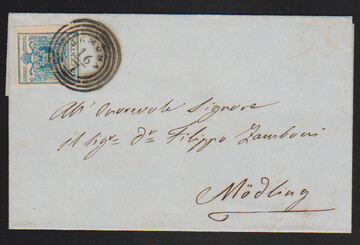 16
All' Onorevole Signore
il Sigr. Dr. Filippo Zamboni
Mödling